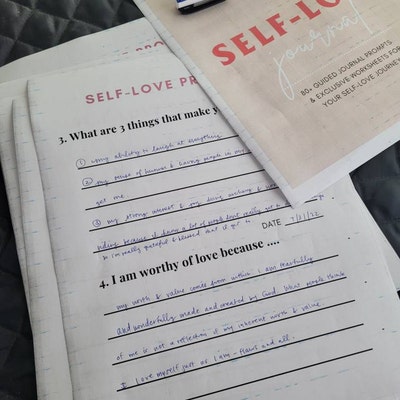 SELF-LOVE
journal
80+ GUIDED JOURNAL PROMPTS
& EXCLUSIVE WORKSHEETS FOR
YOUR SELF-LOVE JOURNEY
PRO
SELF-LOVE PR
3. What are 3 things that make y
① my ability to laugh at everything
② my sense of humour & having people in my
get me.
③ my strong interest &
because a lot of people don't really
& i'm really grateful & blessed that i get to
DATE 7/1/22
4. I am worthy of love because ....
my worth & value comes from within. I am fearfully
and wonderfully made and created by God. What people think
of me is not a reflection of my inherent worth & value
I love myself just as I am - flaws and all.